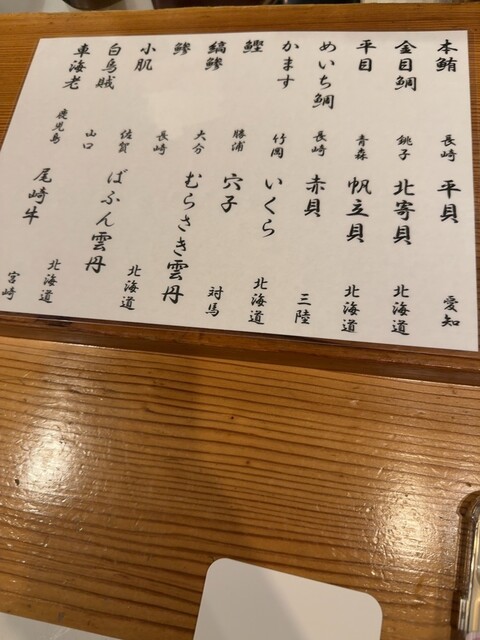 本鮪 長崎
金目鯛 銚子
平目 青森
めいち鯛 長崎
かます 竹岡
鰹 勝浦
縞鯵 大分
鯵 長崎
小肌 佐賀
白烏賊 山口
車海老 鹿児島
平貝 愛知
北寄貝 北海道
帆立貝 北海道
赤貝 三陸
いくら 北海道
穴子 対馬
むらさき雲丹 北海道
ばふん雲丹 北海道
尾崎牛 宮崎